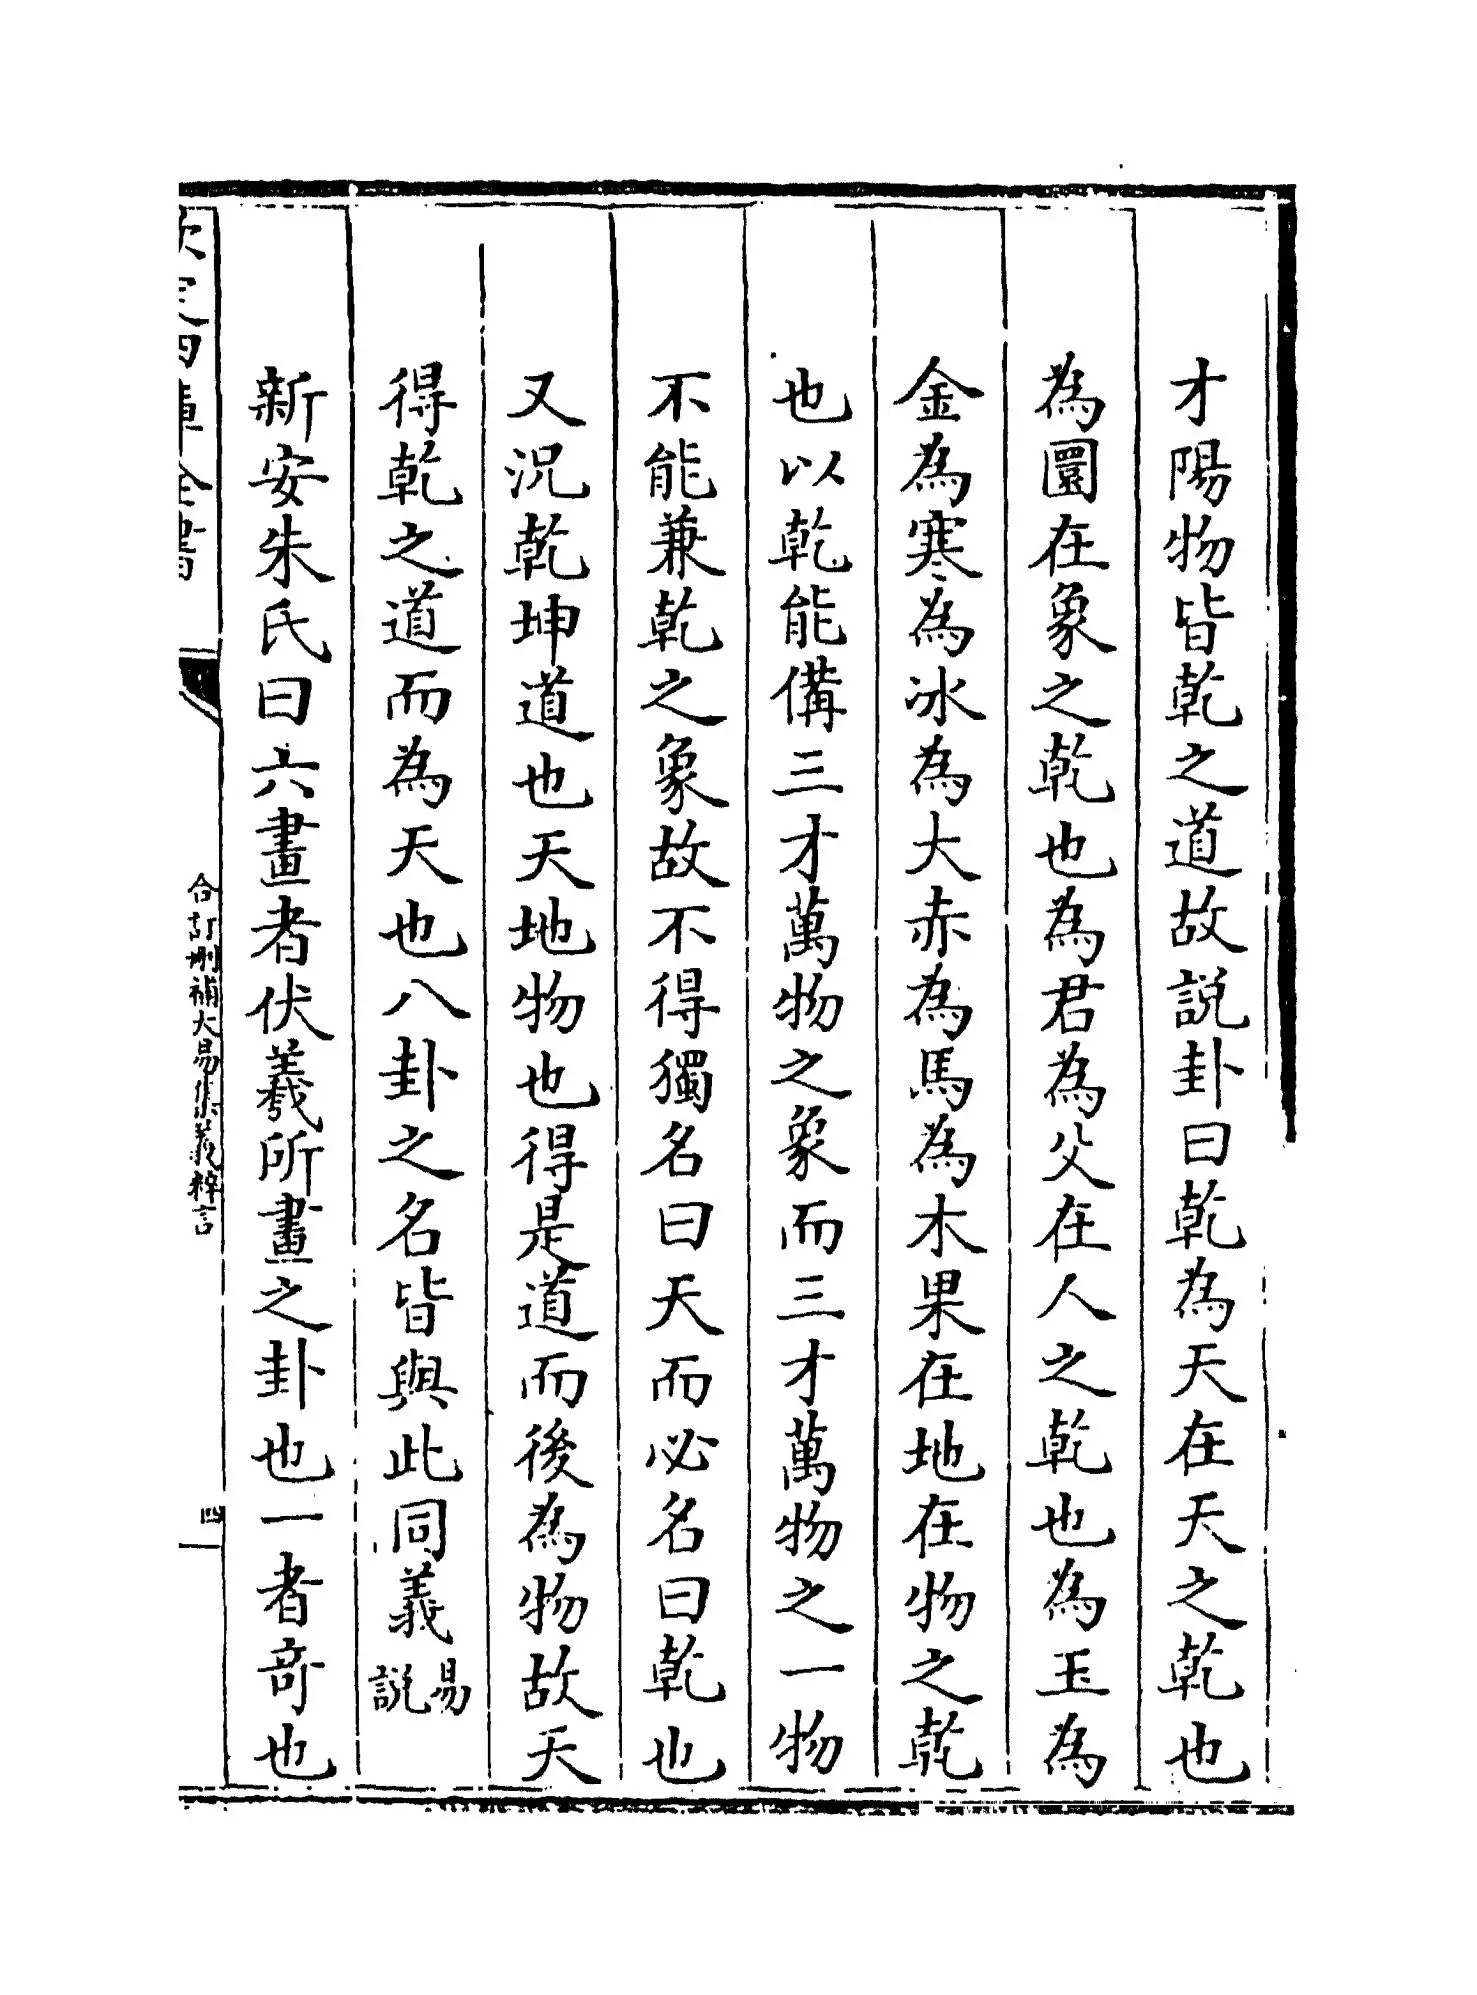 才陽物皆乾之道故說卦曰乾為天在天之乾也
為圜在象之乾也為君為父在人之乾也為玉為
金為寒為冰為大赤為馬為木果在地在物之乾
也以乾能備三才萬物之象而三才萬物之一物
不能兼乾之象故不得獨名曰天而必名曰乾也
又況乾坤道也天地物也得是道而後為物故天
得乾之道而為天也八卦之名皆與此同義易說
新安朱氏曰六畫者伏羲所畫之卦也一者奇也
欽定四庫全書
合訂刪補大易集義粹言
四